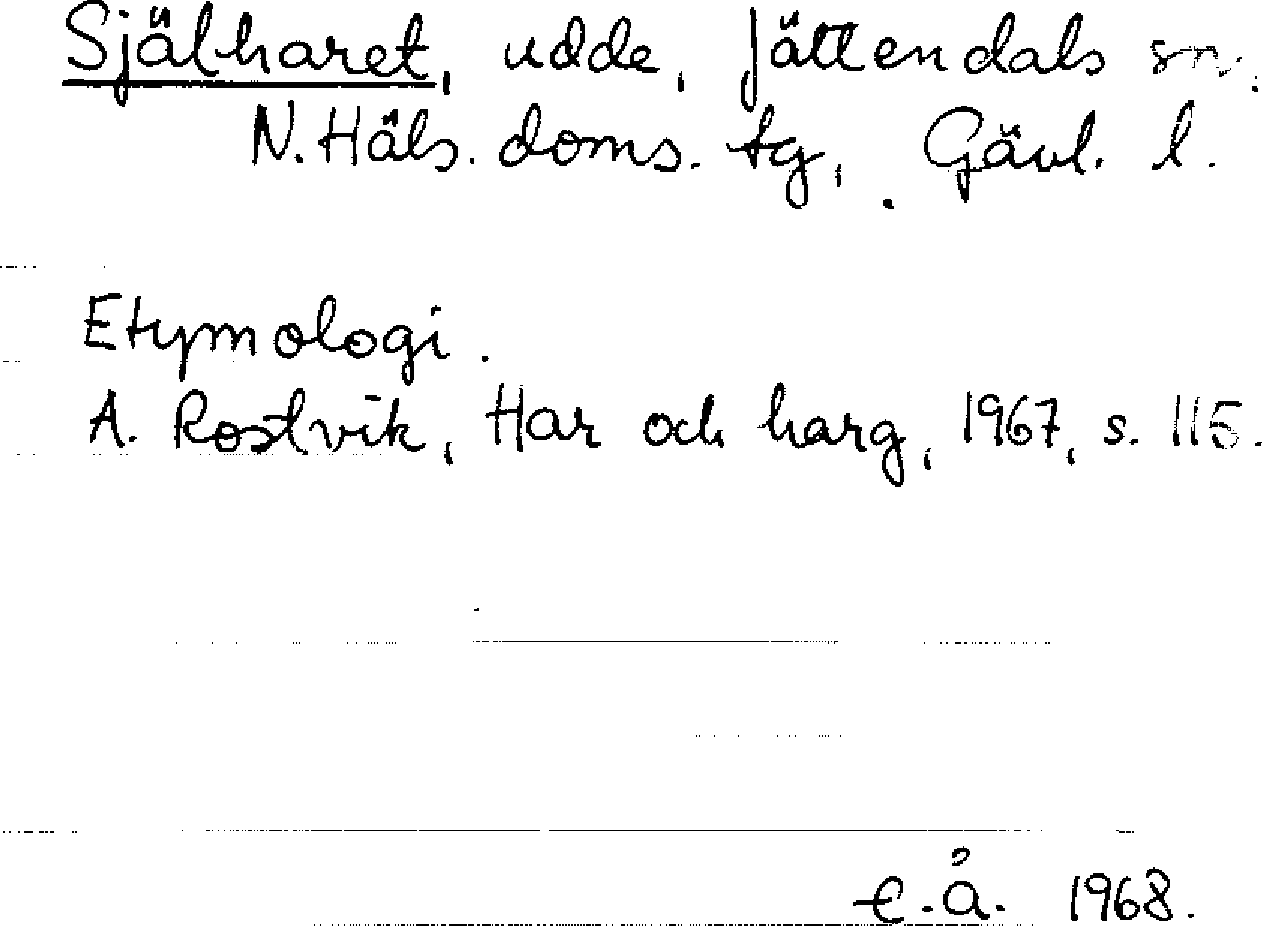 Själharet, udde, Jättendals sn.
N. Häls. doms. tg, Gävl. l.
Etymologi.
A. Rostvik, Har och harg, 1967, s. 115.
e.å. 1968.